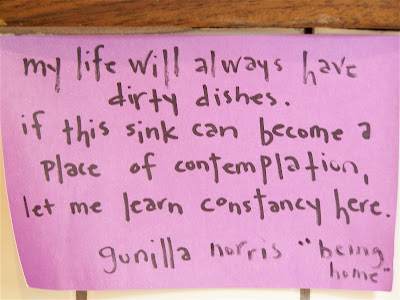 my life will always have
dirty dishes.
if this sink can become a
place of contemplation,
let me learn constancy here.
gunilla norris "being
home"